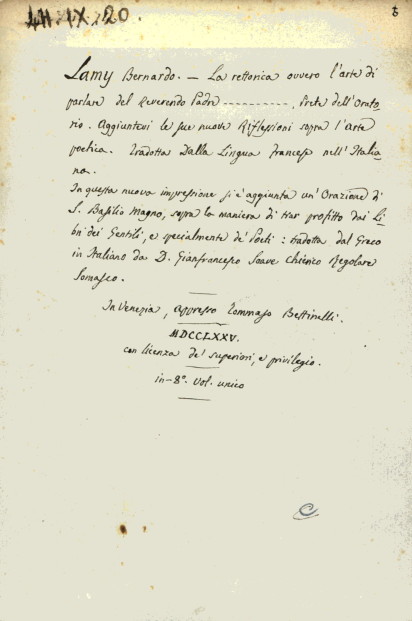 LH. IX. 20
Lamy Bernardo. — La rettorica ovvero l'arte di
parlare del Reverendo Padre ----------, Prete dell'Orato-
rio. Aggiuntevi le sue nuove Riflessioni sopra l'arte
poetica. Tradotta dalla Lingua Francese nell'Italia-
na.
In questa nuova impressione si è aggiunta un'Orazione di
S. Basilio Magno, sopra la maniera di trar profitto dai Li-
bri dei Gentili, e specialmente de' Poeti: tradotta dal Greco
in Italiano da D. Gianfrancesco Soave Chierico Regolare
Somasco.
In Venezia, appresso Tommaso Bettinelli.
MDCCLXXV.
con licenza de' superiori, e privilegio.
in-8º. Vol. unico
C